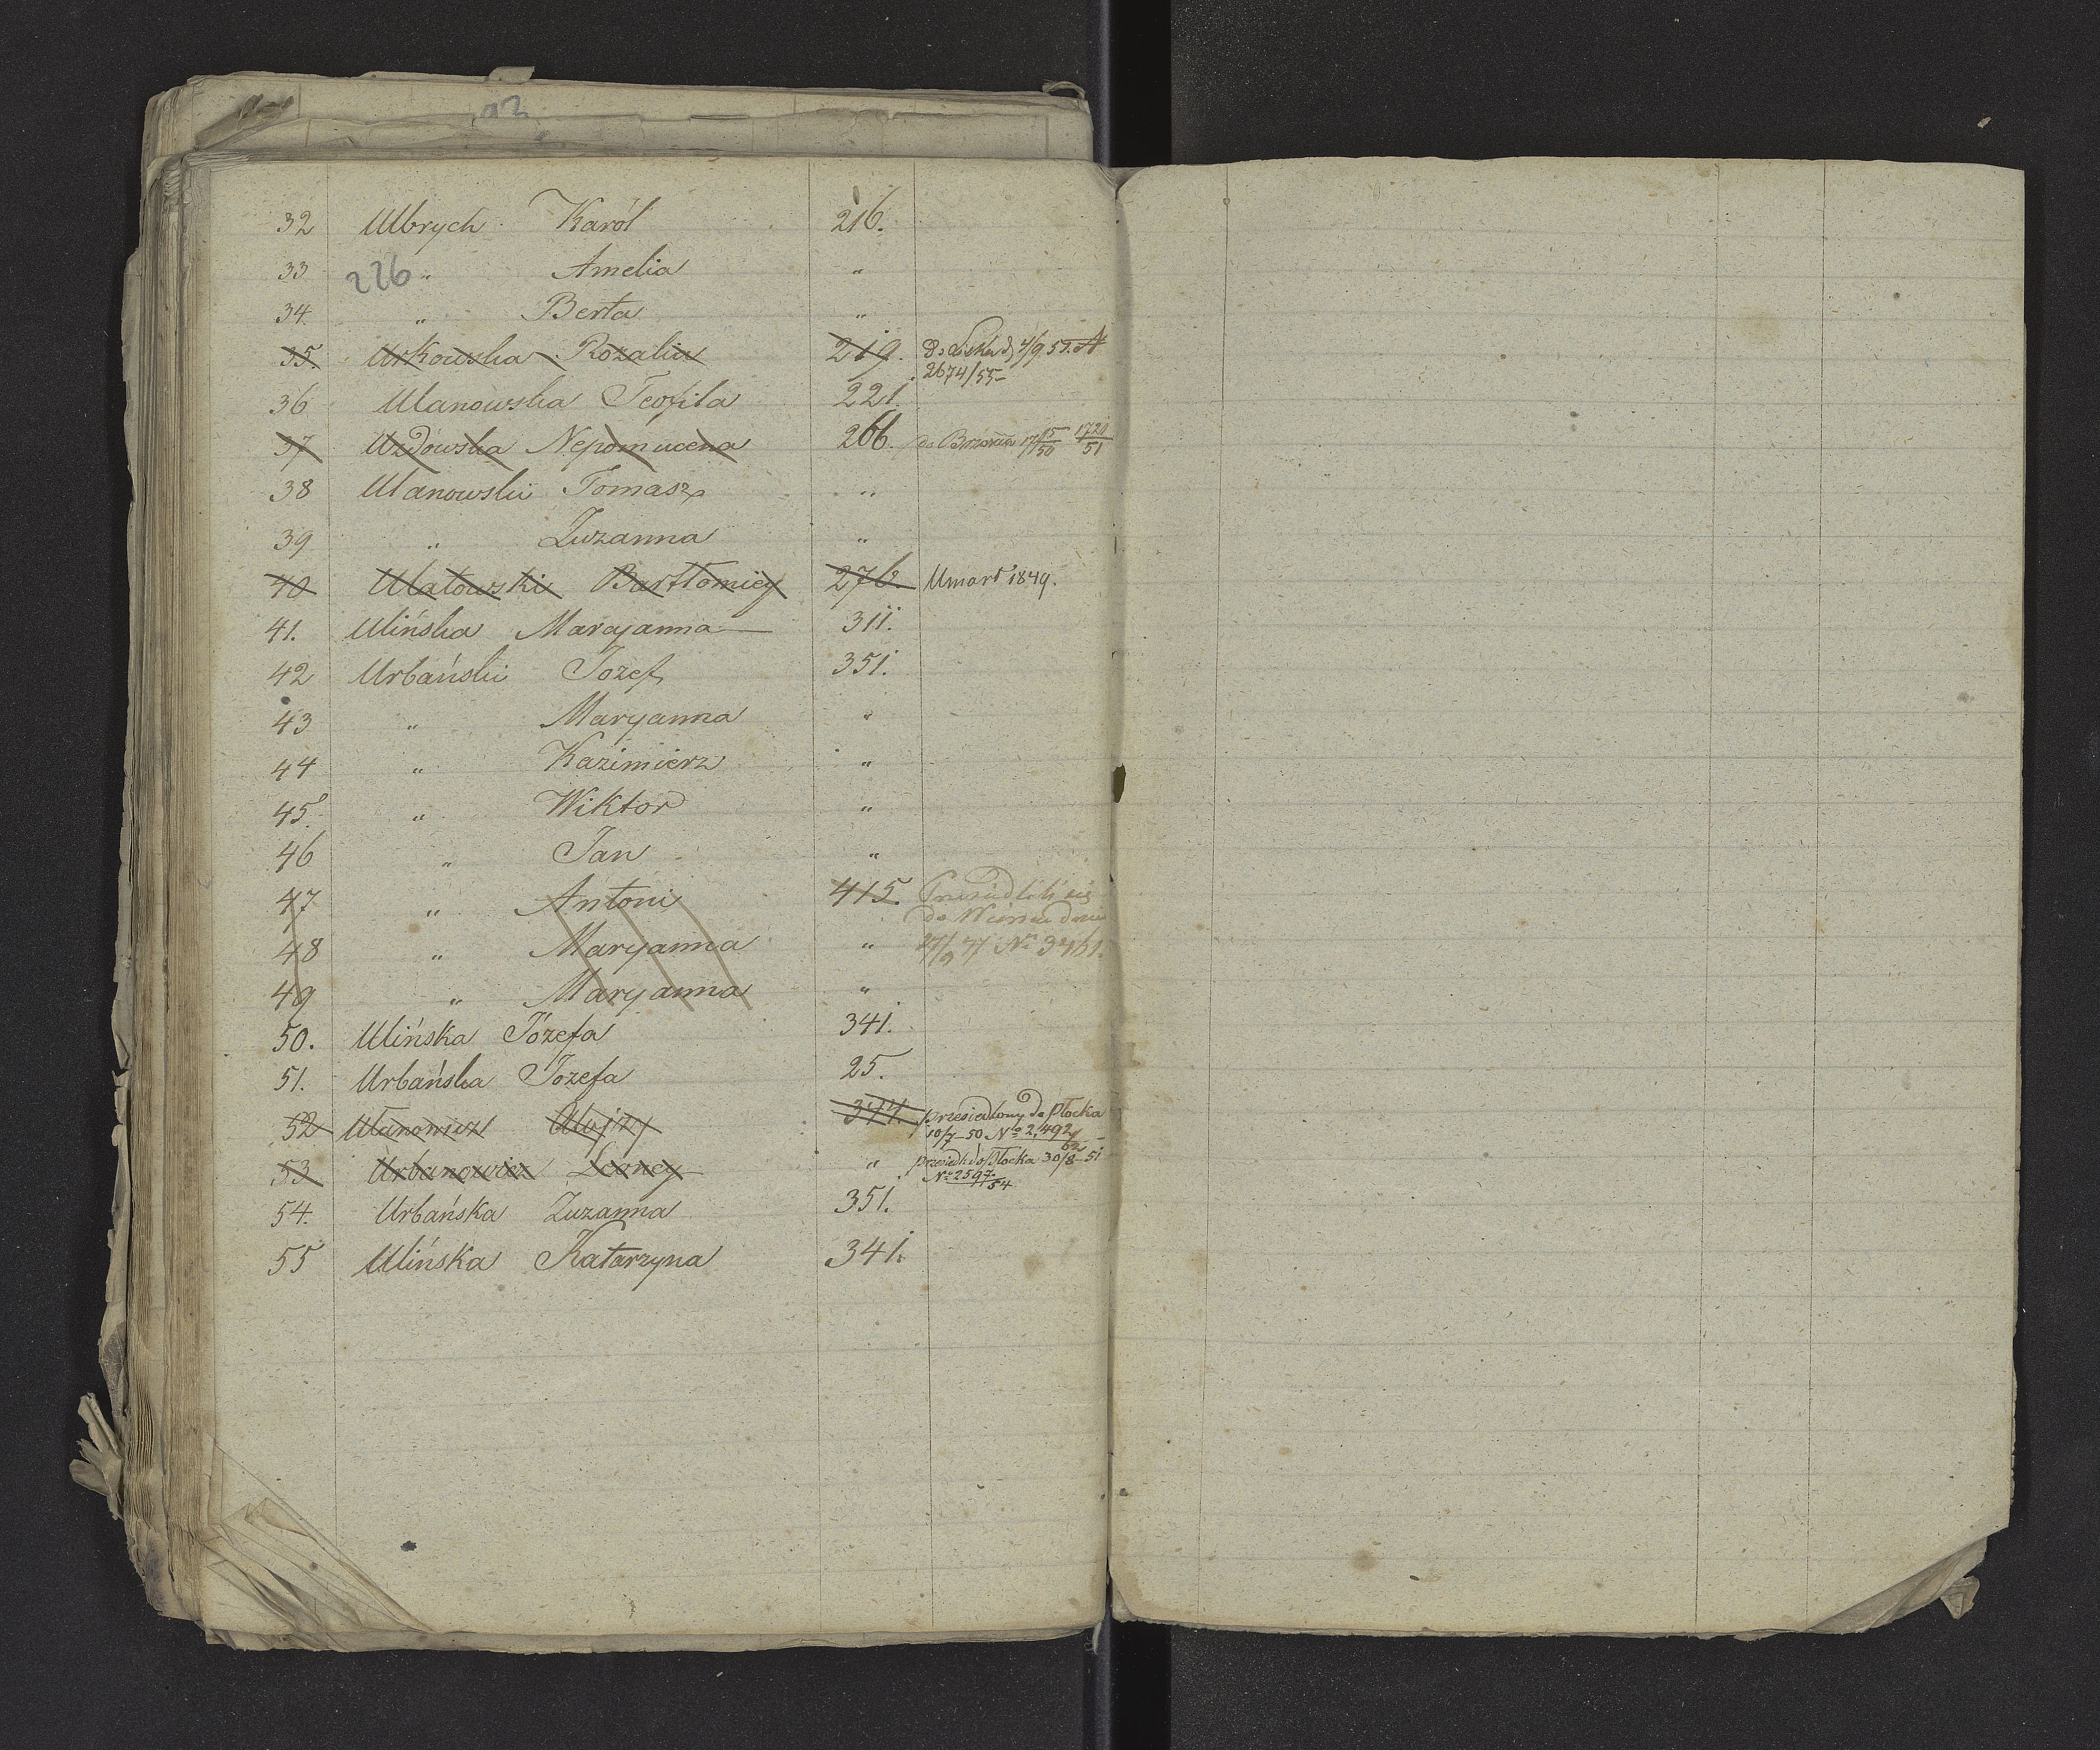 93
32 Ulbrych Karól 216.
33 226 „ Amelia „
34. „ Berta „
35. Urkowska Rozalia 219. 4/9 55. N
2674/55
36 Ulanowska Teofila 221.
37 Uzdowska Nepomucena 266. do 17/50 1720/51
38 Ulanowski Tomasz „
39 „ Zuzanna „
40 Ulatowski Bartłomiey 276. Umarł 1849.
41. Ulińska Maryanna 311.
42 Urbański Jozef 351.
43 „ Maryanna „
44 „ Kazimierz „
45. „ Wiktor „
46 „ Jan „
47 „ Antoni 415. Przesiedlili się
48 „ Maryanna „ do dnia
27/9 47 No 3461.
49 „ Maryanna „
50. Ulińska Józefa 341.
51. Urbańska Jozefa 25.
52 Ulanowicz Aloizy 344. przesiedlony do Płocka
10/7 50 No 2,492
53 Urbanowicz Leoney „ przesiedl: do Płocka 30/8 51
No 2597/54
54. Urbańska Zuzanna 351.
55 Ulińska Katarzyna 341.